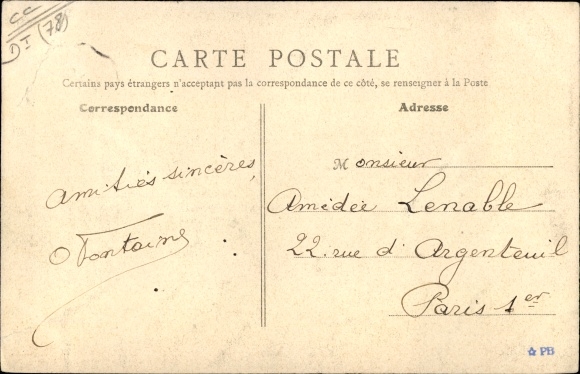 CC
DT (78)
CARTE POSTALE
Certains pays étrangers n'acceptant pas la correspondance de ce côté, se renseigner à la Poste
Correspondance
Adresse
Amitiés sincères,
O Fontaine
Monsieur
Amédée Lenable
22. rue d'Argenteuil
Paris 1er
PB